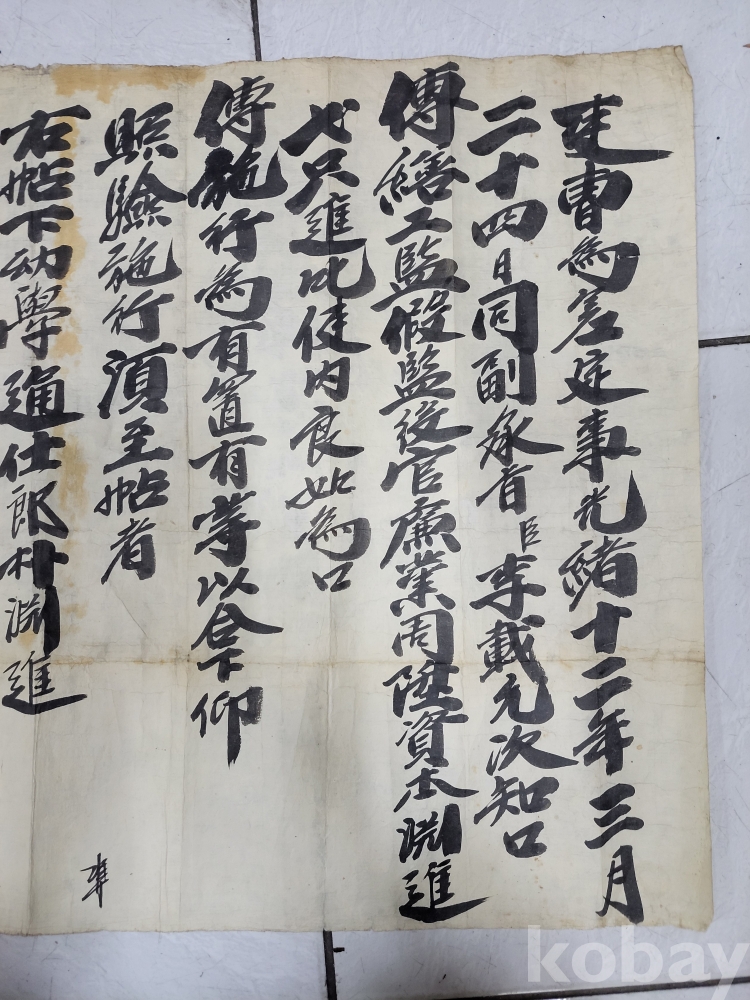 吏曹為差定事光緒十二年三月
二十四日同副承旨臣李載允次知口
傳繕工監假監役官廉業周陞資朴淵進
代只進叱使內良如為口
傳施行為有置有等以合下仰
照驗施行須至帖者
右帖下幼學通仕郎朴淵進
準
kobay